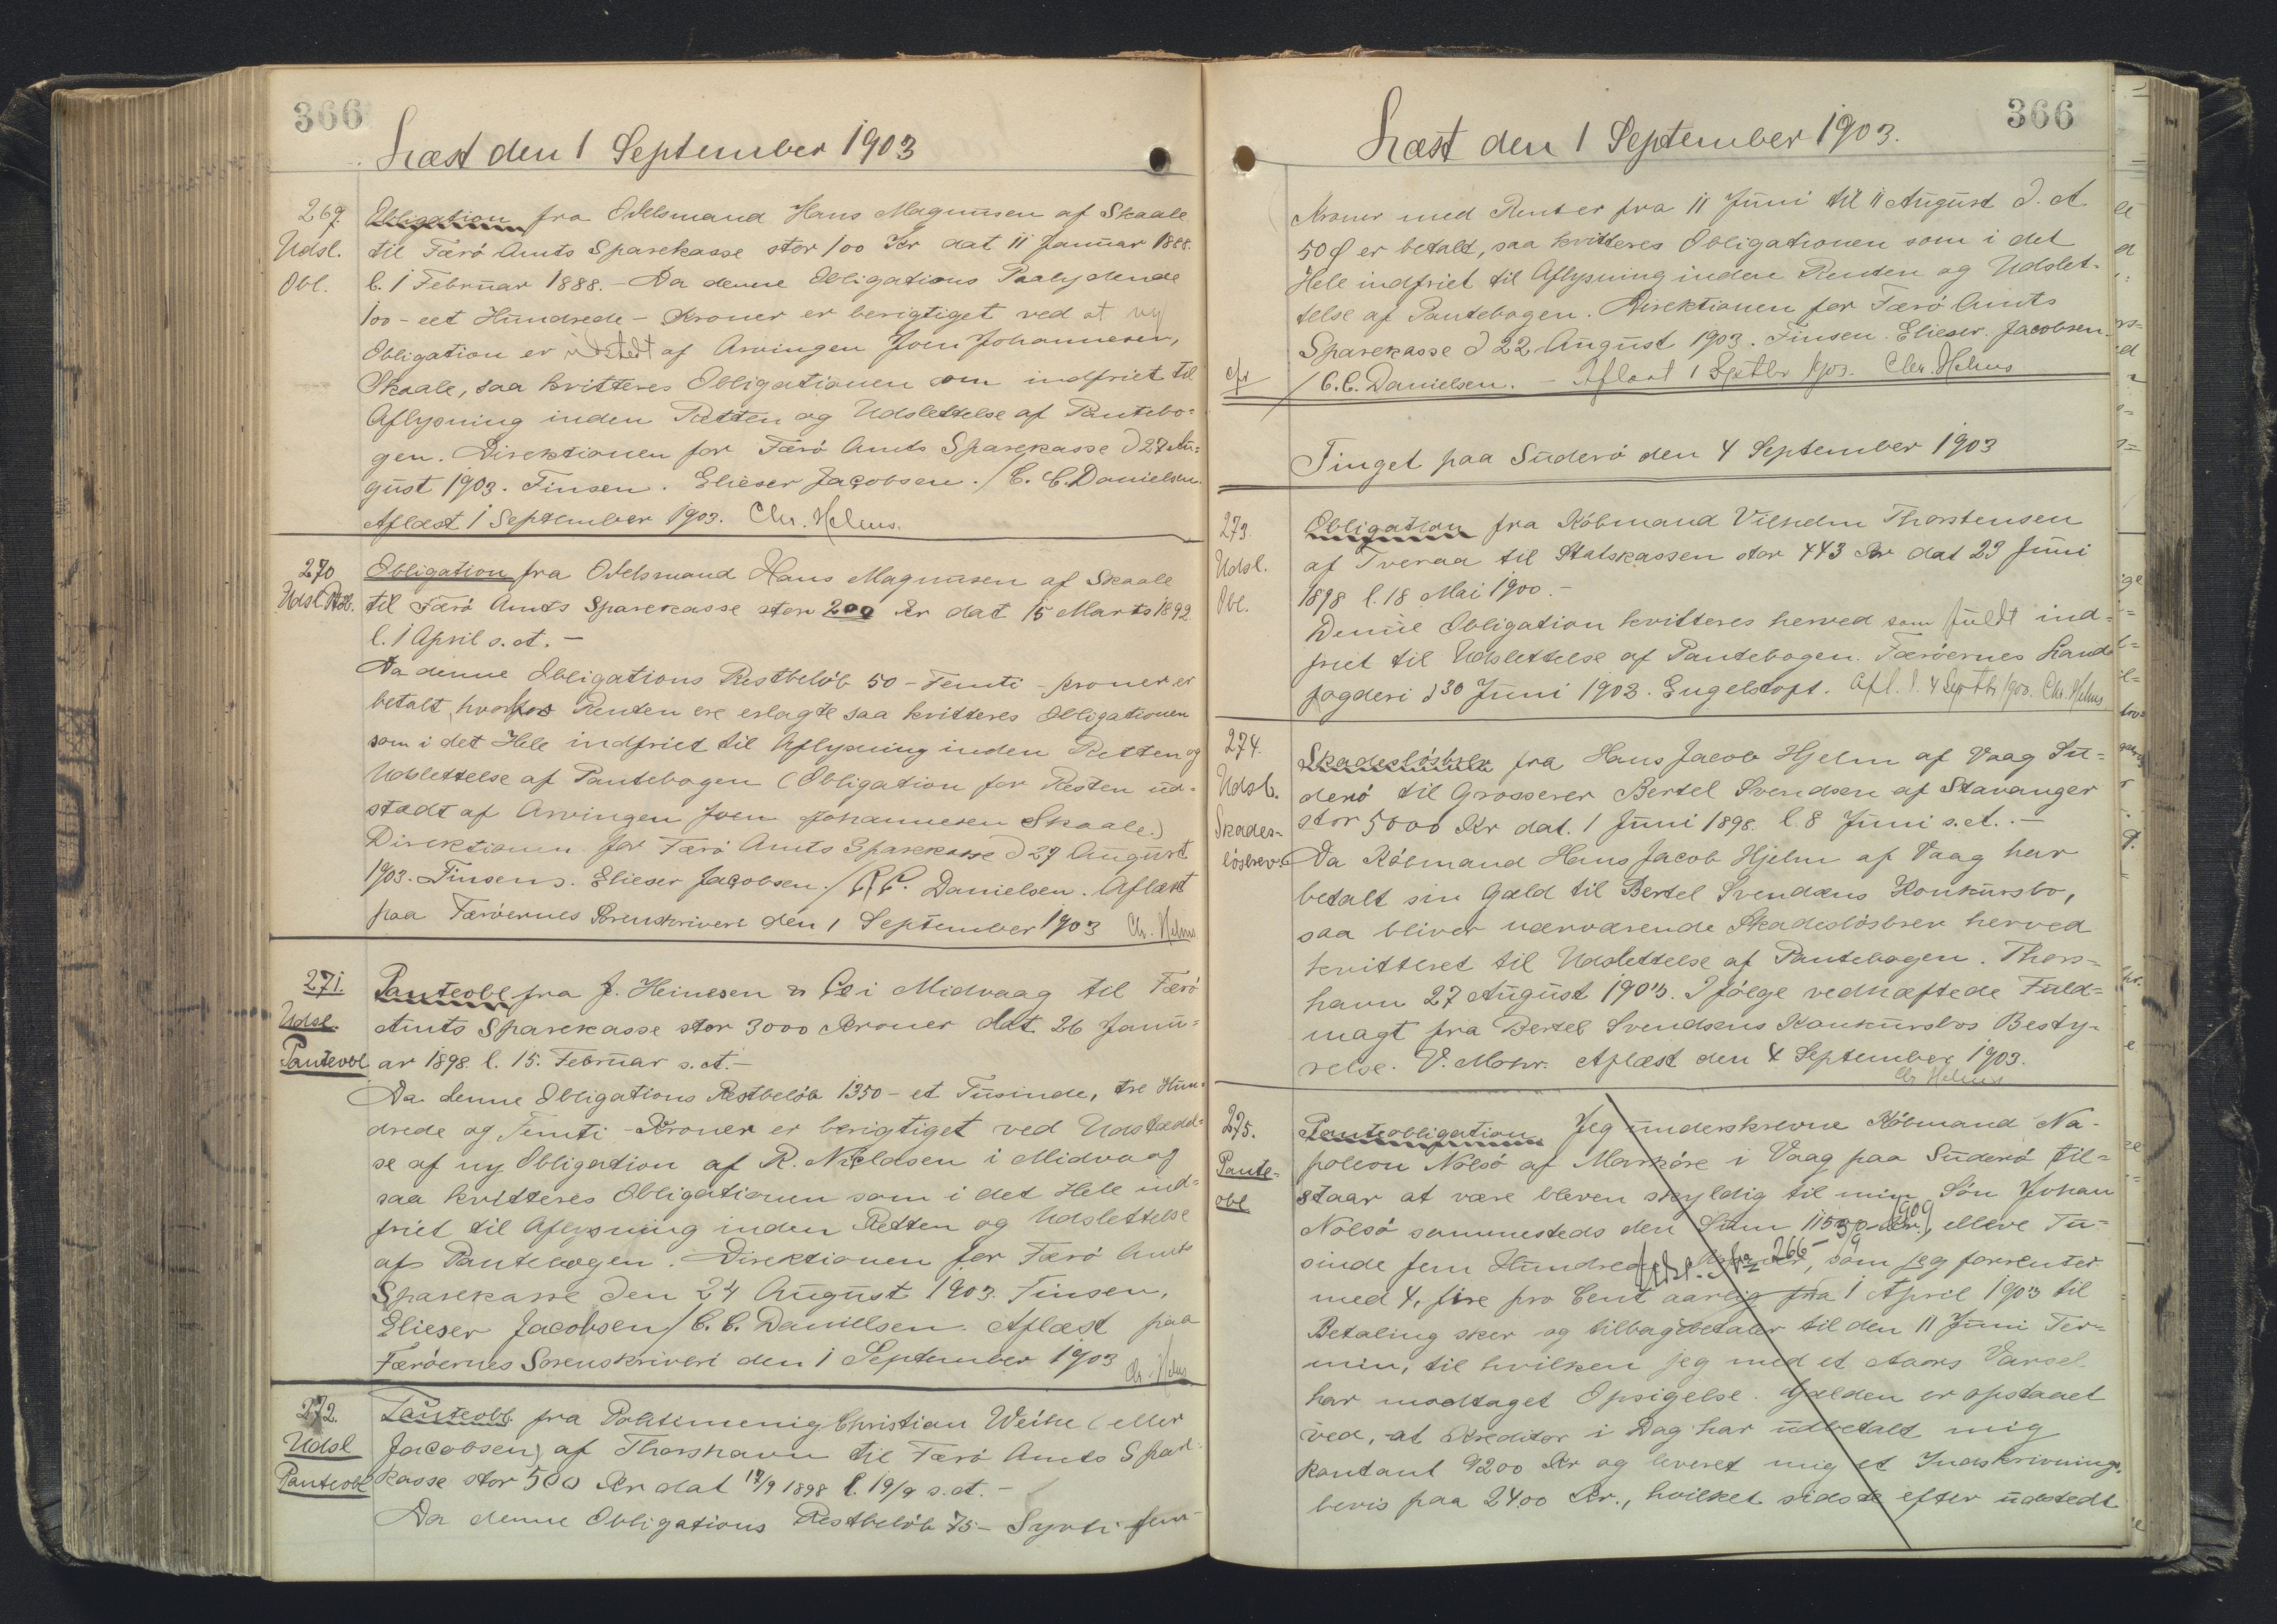 366
Læst den 1 September 1903
269.
Udsl.
Obl.
Obligation fra Odelsmand Hans Magnusen af Skaale
til Færö Amts Sparekasse stor 100 Kr dat 11 Januar 1888.
l. 1 Februar 1888. - Da denne Obligations Paalydende
100 - eet Hundrede - Kroner er berigtiget ved at ny
Obligation er udstedt af Arvingen Joen Johannesen,
Skaale, saa kvitteres Obligationen som indfriet til
Aflysning inden Retten og Udslettelse af Pantebo=
gen. Direktionen for Færö Amts Sparekasse d 27 Au=
gust 1903. Finsen. Elieser Jacobsen. / C. C. Danielsen.
Aflæst 1 September 1903. Chr. Helms.
270
Udsl. Obl.
Obligation fra Odelsmand Hans Magnusen af Skaale
til Færö Amts Sparekasse stor 200 Kr dat 15 Marts 1892.
l. 1 April s. A. -
Da denne Obligations Restbelöb 50 - Femti - Kroner er
betalt, hvorfor Renten ere erlagte saa kvitteres Obligationen
som i det Hele indfriet til Aflysning inden Retten og
Udslettelse af Pantebogen (Obligation for Resten ud=
stædt af Arvingen Joen Johannesen Skaale.)
Direktionen for Færö Amts Sparekasse d 27 August
1903. Finsen. Elieser Jacobsen. / C. C. Danielsen. Aflæst
paa Færöernes Sorenskriveri den 1 September 1903 Chr. Helms
271.
Udsl.
Panteobl
Panteobl fra J. Heinesen & Co i Midvaag til Færö
Amts Sparekasse stor 3000 Kroner dat. 26 Janu=
ar 1898. l. 15. Februar s. A. -
Da denne Obligations Restbelöb 1350 - et Tusinde, tre Hun=
drede og Femti - Kroner er berigtiget ved Udstædd=
se af ny Obligation af R. Nieldsen i Midvaag
saa kvitteres Obligationen som i det Hele ind=
friet til Aflysning inden Retten og Udslettelse
af Pantebogen. Direktionen for Færö Amts
Sparekasse den 24 August 1903. Finsen,
Elieser Jacobsen / C. C. Danielsen. Aflæst paa
Færöernes Sorenskriveri den 1 September 1903
Chr. Helms
272.
Udsl
Panteobl
Panteobl. fra Politimenig Christian Weihe (eller
Jacobsen) af Thorshavn til Færö Amts Spare=
kasse stor 500 Kr dat 17/9 1898 l. 19/9 s. A. -
Da denne Obligations Restbelöb 75 - Syvti fem -
366
Læst den 1 September 1903.
Kroner med Renter fra 11 Juni til 11 August d. A
50 Ø er betalt, saa kvitteres Obligationen som i det
Hele indfriet til Aflysning inden Retten og Udslet=
telse af Pantebogen. Direktionen for Færö Amts
Sparekasse d 22 August 1903. Finsen. Elieser Jacobsen.
/ C. C. Danielsen. - Aflæst 1 Septbr 1903. Chr. Helms
Tinget paa Suderö den 4 September 1903
273.
Udsl.
Obl.
Obligation fra Köbmand Vilhelm Thorstensen
af Tveraa til Statskassen stor 443 Kr dat 23 Juni
1898 l. 18 Mai 1900. -
Denne Obligation kvitteres herved som fuldt ind=
friet til Udslettelse af Pantebogen. Færöernes Land=
fogderi d 30 Juni 1903. Engelstoft. Afl. d. 4 Septbr 1903. Chr. Helms
274.
Udsl.
Skades-
lösbrev
Skadeslösbrev fra Hans Jacob Hjelm af Vaag Su=
derö til Grosserer Bertel Svendsen af Stavanger
stor 5000 Kr dat. 1 Juni 1898. l. 8 Juni s. A. -
Da Köbmand Hans Jacob Hjelm af Vaag har
betalt sin Gæld til Bertel Svendsens Konkursbo,
saa bliver nærværende Skadeslösbrev herved
kvitteret til Udslettelse af Pantebogen. Thors=
havn 27 August 1903. Ifölge vedhæftede Fuld=
magt fra Bertel Svendsens Konkursbos Besty=
relse. V. Mohr. Aflæst den 4 September 1903.
Chr Helms
275.
Pante-
obl
Panteobligation. Jeg underskrevne Köbmand Na-
poleon Nolsö af Marköre i Vaag paa Suderö til=
staar at være bleven skyldig til min Sön Johan
Nolsö sammesteds den Sum 11500 Kr, elleve Tu=
sinde fem Hundrede Kroner, som jeg forrenter
med 4, fire pro Cent aarlig fra 1 April 1903 til
Betaling sker og tilbagebetaler til den 11 Juni Ter=
min, til hvilken jeg med et Aars Varsel
har modtaget Opsigelse. Gælden er opstaaet
ved, at Kreditor i Dag har udbetalt mig
kontant 9200 Kr og leveret mig et Indskrivnings
bevis paa 2400 Kr., hvilket sidste efter udstedt